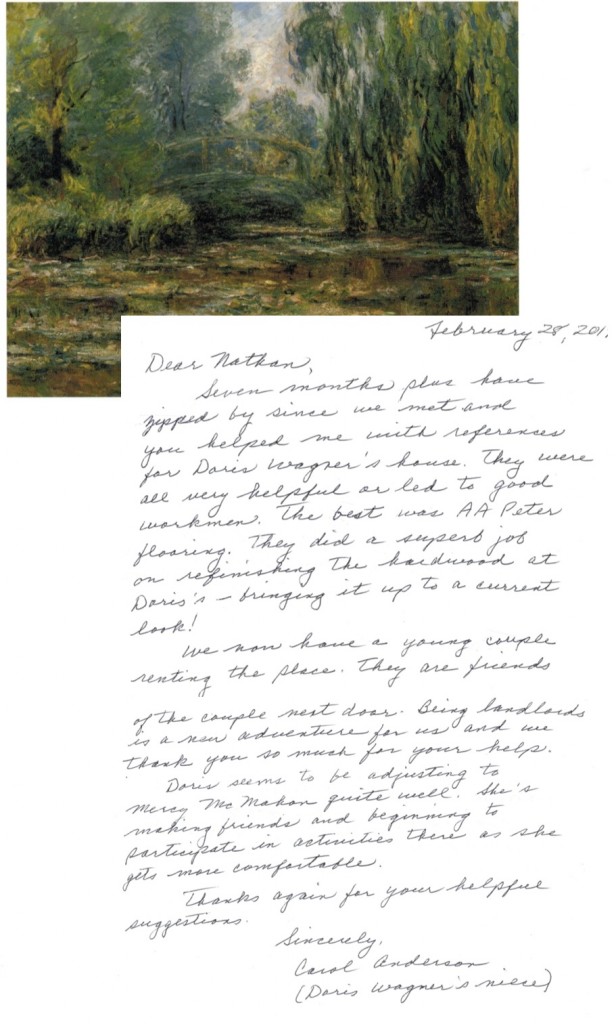 February 28, 201
Dear Nathan,
Seven months plus have
zipped by since we met and
you helped me with references
for Doris Wagner's house. They were
all very helpful or led to good
workmen. The best was AA Peter
flooring. They did a superb job
on refinishing the hardwood at
Doris's - bringing it up to a current
look!
We now have a young couple
renting the place. They are friends
of the couple next door. Being landlords
is a new adventure for us and we
thank you so much for your help.
Doris seems to be adjusting to
Mercy McMahon quite well. She's
making friends and beginning to
participate in activities there as she
gets more comfortable.
Thanks again for your helpful
suggestions.
Sincerely,
Carol Anderson
(Doris Wagner's niece)